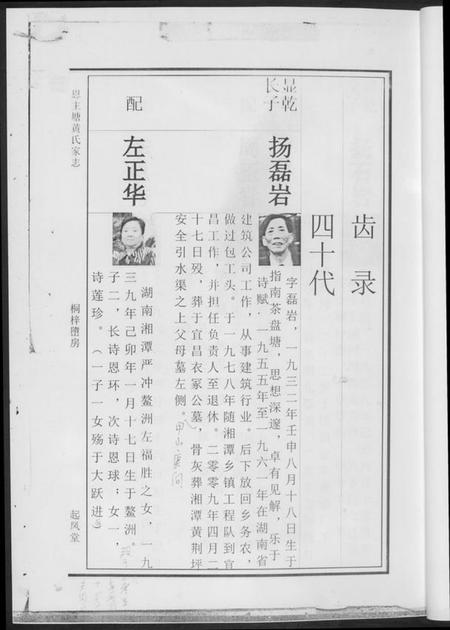 齿录
四十代
显乾
长子
扬磊岩
字磊岩，一九三二年壬申八月十八日生于
指南茶盘塘，思想深邃，卓有见解，乐于
诗赋.一九五五年至一九六一年在湖南省
建筑公司工作，从事建筑行业。后下放回乡务农，
做过包工头。于一九七八年随湘潭乡镇工程队到宜
昌工作，并担任负责人至退休。二零零九年四月二
十七日殁，葬于宜昌衣冢公墓，骨灰葬湘潭黄荆坪
安全引水渠之上父母墓左侧。甲山
配
左正华
湖南湘潭严冲鳌洲左福胜之女，一九
三九年己卯年一月十七日生于鳌洲。
子二，长诗恩环，次诗恩球；女一，
诗莲珍。（一子一女殇于大跃进
恩主塘黄氏家志
桐梓堕房
起凤堂